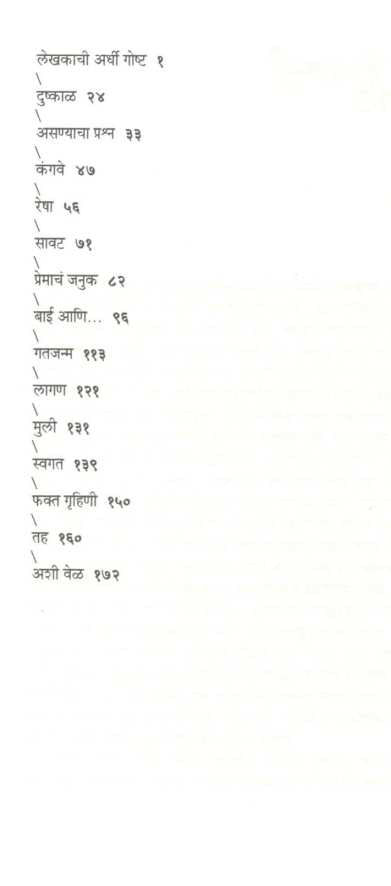 लेखकाची अर्धी गोष्ट १
\
दुष्काळ २४
\
असण्याचा प्रश्न ३३
\
कंगवे ४७
\
रेषा ५६
\
सावट ७१
\
प्रेमाचं जनुक ८२
\
बाई आणि... ९६
\
गतजन्म ११३
\
लागण १२१
\
मुली १३१
\
स्वगत १३९
\
फक्त गृहिणी १५०
\
तह १६०
\
अशी वेळ १७२